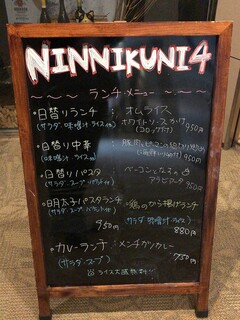 NINNIKUNI4
～～～ランチメニュー～～～
・日替りランチ : オムライス
(サラダ、味噌汁、ライス付) ホワイトソースかけ
(コロッケ付) 950円
・日替り中華 :
(味噌汁、ライス付) 950円
・日替りパスタ : ベーコンとなすの
(サラダ、スープ アラビアータ
950円
・明太子パスタランチ ・鶏のから揚げランチ
(サラダ、スープ (サラダ 味噌汁 ライス)
950円 880円
・カレーランチ : メンチカツカレー
(サラダ、スープ) 750円
ライス大盛無料!!